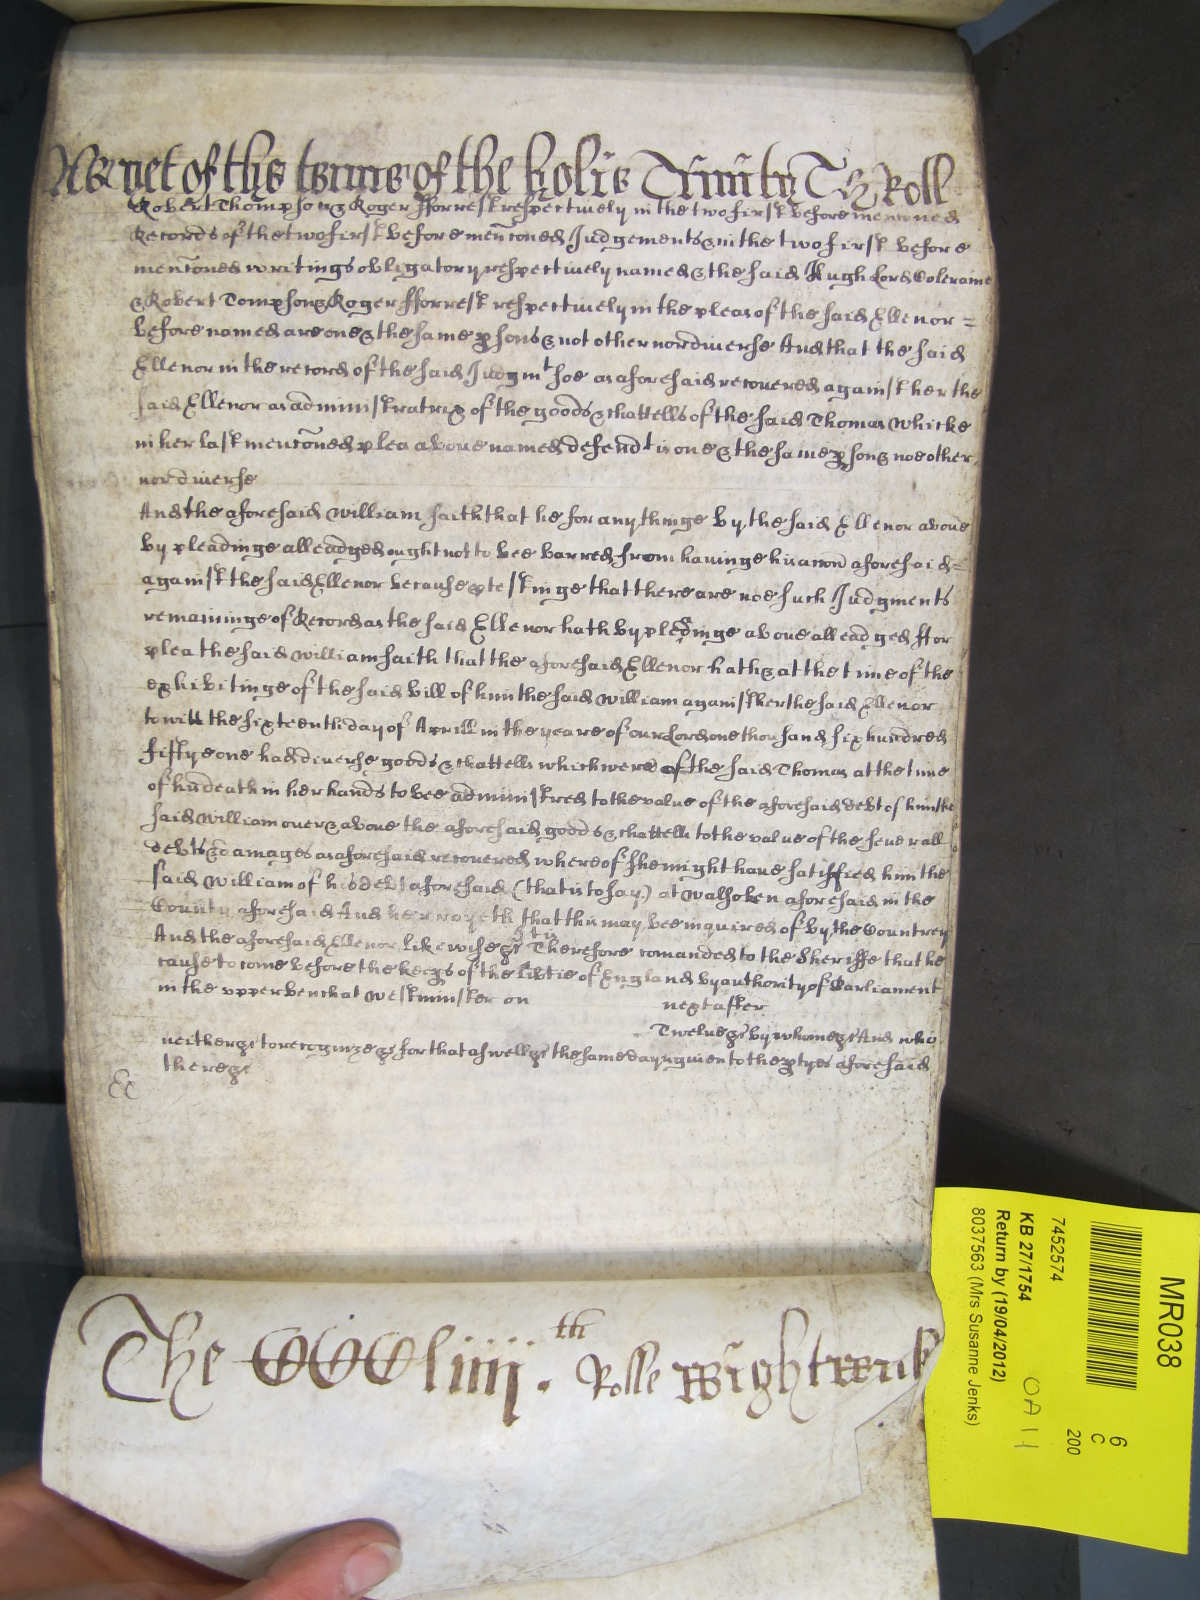 yet of the terme of the holie Trinity The Roll
Robert Thompson & Roger fforrest respectively in the two first before menconed
Records of the two first before menconed Judgements & in the two first before
menconed writings obligatory respectively named & the said Hugh Lord Colerane
& Robert Tompson & Roger fforrest respectively in the pleas of the said Ellenor =
before named are one & the same psons & not other nor diverse And that the said
Ellenor in the record of the said Judgmt soe as aforesaid recovered against her the
said Ellenor as administratrix of the goods & chattells of the said Thomas Whicke
in her last menconed plea above named defendt is one & the same pson & noe other
nor diverse
And the aforesaid William saith that he for any thinge by the said Ellenor above
by pleadinge alleadged ought not to bee barred from havinge his accon aforesaid =
against the said Ellenor because ptestinge that there are noe such Judgments
remaininge of Record as the said Ellenor hath by pleadinge above alleadged ffor
plea the said William saith that the aforesaid Ellenor hath & at the time of the
exhibitinge of the said bill of him the said William against her the said Ellenor
to witt the sixteenth day of Aprill in the yeare of our Lord one thousand six hundred
fifty one had diverse goods & chattells which were of the said Thomas at the time
of his death in her hands to bee administred to the value of the aforesaid debt of him the
said William over & above the aforesaid goods & chattells to the value of the severall
debts & damages as aforesaid recovered whereof she might have satisfied him the
said William of his debt aforesaid (that is to say) at Walsoken aforesaid in the
County aforesaid And hee prayeth that this may bee inquired of by the Countrey
And the aforesaid Ellenor likewise &c Therefore comanded to the Sheriffe that he
cause to come before the keeps of the libtie of England by authority of Parliament
in the upper bench at Westminster on next after
Twelve &c by whome &c And who
neither &c to recognize &c for that aswell &c the same day is given to the ptyes aforesaid
there &c
The CCCliiij.th Rolle Wightwick
MR038
7452574
KB 27/1754
Return by (19/04/2012)
8037563 (Mrs Susanne Jenks)
6
C
200
OA 11